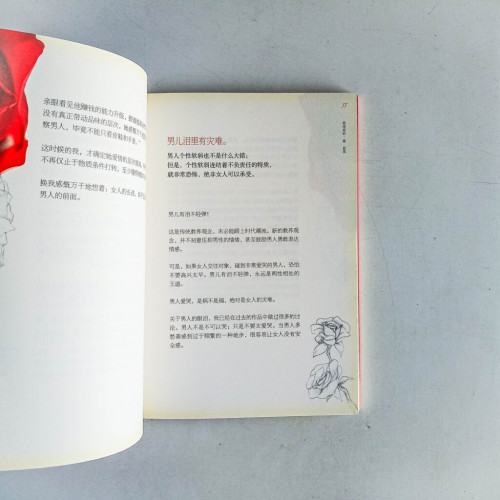 亲眼看见他赚钱的能力升级,
没有真正带动品味的层次,
察男人,毕竟不能只看
这时候的我,才确定她爱情的
不再仅止于物质条件打转,至少
换我感慨万千地想着:女人的
男人的前面。
37
男儿泪里有灾难。
男人个性软弱也不是什么大错;
但是,个性软弱连结着不负责任的特质,
就非常恐怖,绝非女人可以承受。
男儿有泪不轻弹?
这是传统教养观念,未必能跟上时代潮流。新的教养观
念,并不刻意压抑男性的情绪,甚至鼓励男人勇敢表达
情感。
可是,如果女人交往对象,碰到非常爱哭的男人,恐怕
不要高兴太早。男儿有泪不轻弹,永远是两性相处的
王道。
男人爱哭,是祸不是福。绝对是女人的灾难。
关于男人的眼泪,我已经在过去的作品中做过很多的讨
论。男人不是不可以哭;只是不要太爱哭。当男人多
愁善感到过于频繁的一种地步,很容易让女人没有安
全感。